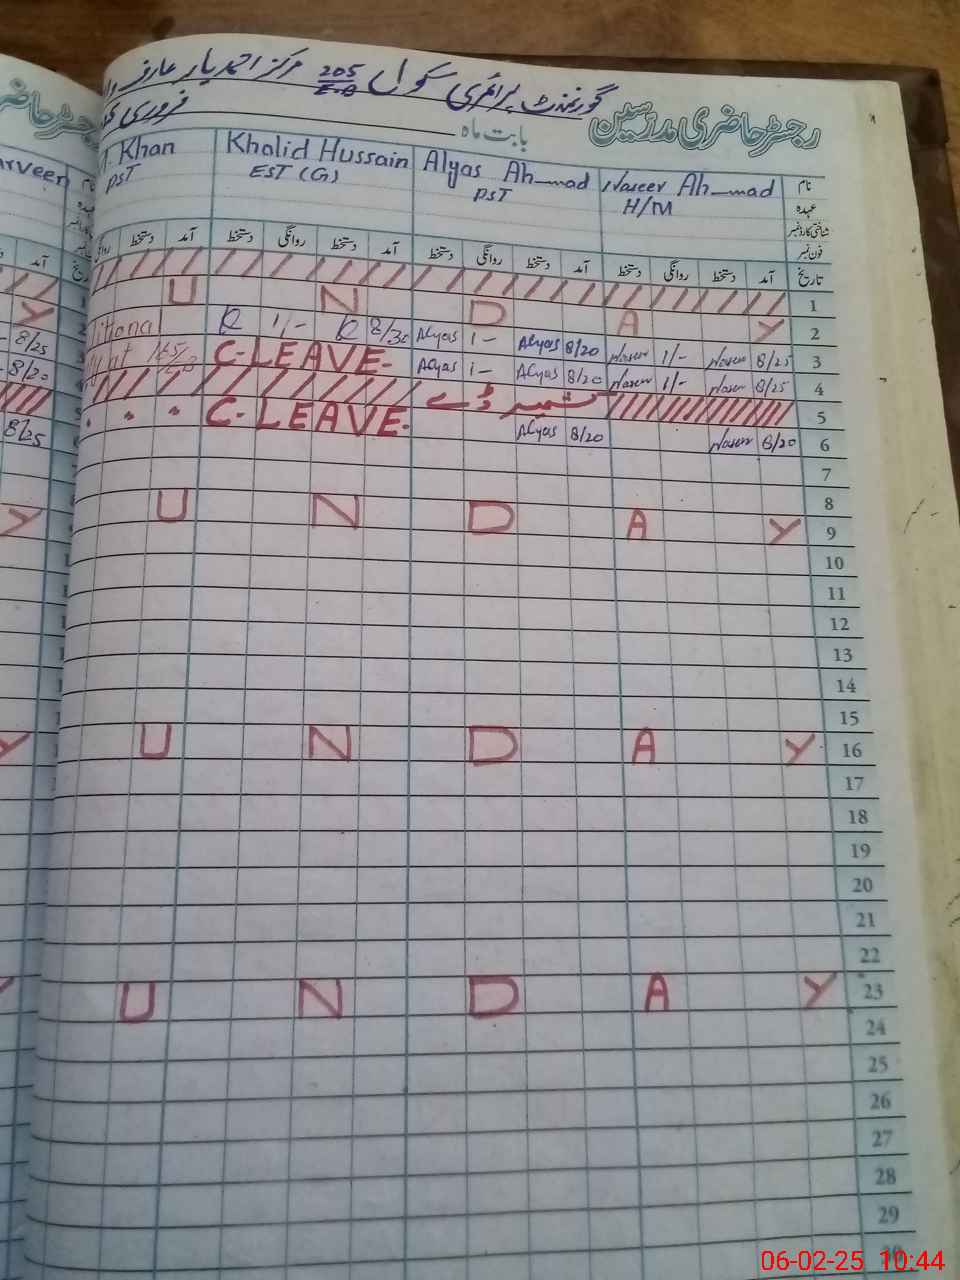 گورنمنٹ پرائمری سکول 205 E-B مرکز احمد یار عارف
رجسٹر حاضری مدرسین
بابت ماہ
فروری
arveen
Khan
Khalid Hussain
Alyas Ahmad
Naseer Ahmad
نام
PST
EST (G)
PST
H/M
عہدہ
شناختی کارڈ نمبر
فون نمبر
آمد دستخط آمد دستخط روانگی دستخط آمد دستخط روانگی دستخط آمد دستخط روانگی دستخط
تاریخ
1
Y U N D A Y 2
8/25 R 1/- R 8/30 Alyas 1- Alyas 8/20 Naseer 1/- Naseer 8/25 3
8/20 C-LEAVE- Alyas 1- Alyas 8/20 Naseer 1/- Naseer 8/25 4
کشمیر ڈے 5
8/25 " " C-LEAVE- Alyas 8/20 Naseer 8/20 6
7
8
Y U N D A Y 9
10
11
12
13
14
15
Y U N D A Y 16
17
18
19
20
21
22
Y U N D A Y 23
24
25
26
27
28
29
30
06-02-25 10:44